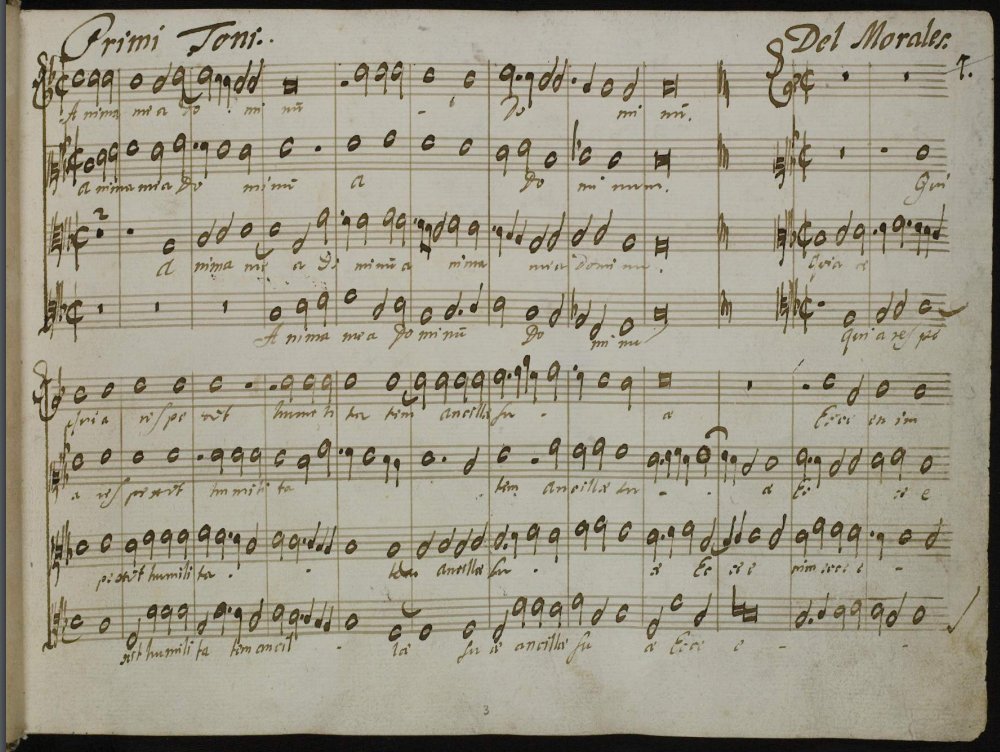 Primi Toni. Del Morales.
4.
Anima mea do mi nū - Do mi nū.
Anima mea do minū A Do mi num. Qui
2
A nima me a Do minū a nima mea domi nu. Quia re
Anima mea Do mi nū Do mi nu Qui a res pe
quia respe xit humi li ta tem ancillæ su - æ Ecce en im
a res pexit humili ta tem Ancillæ su - - æ Ec ce e
pexit humili ta - - tem ancillæ su - æ Ec ce e nim ecce e -
xit humili ta tem ancil - læ su æ ancillæ su æ Ecce e - -
3